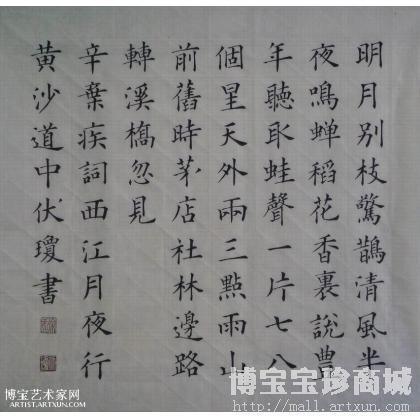 明月别枝驚鵲清風半
夜鳴蝉稻花香裏説豊
年聽取蛙聲一片七八
個星天外兩三點雨山
前舊時茅店社林邊路
轉溪橋忽見
辛棄疾詞西江月夜行
黄沙道中伏瓊書
博宝艺术家网
ARTIST.ARTXUN.COM
博宝宝珍商城
http://mall.artxun.com